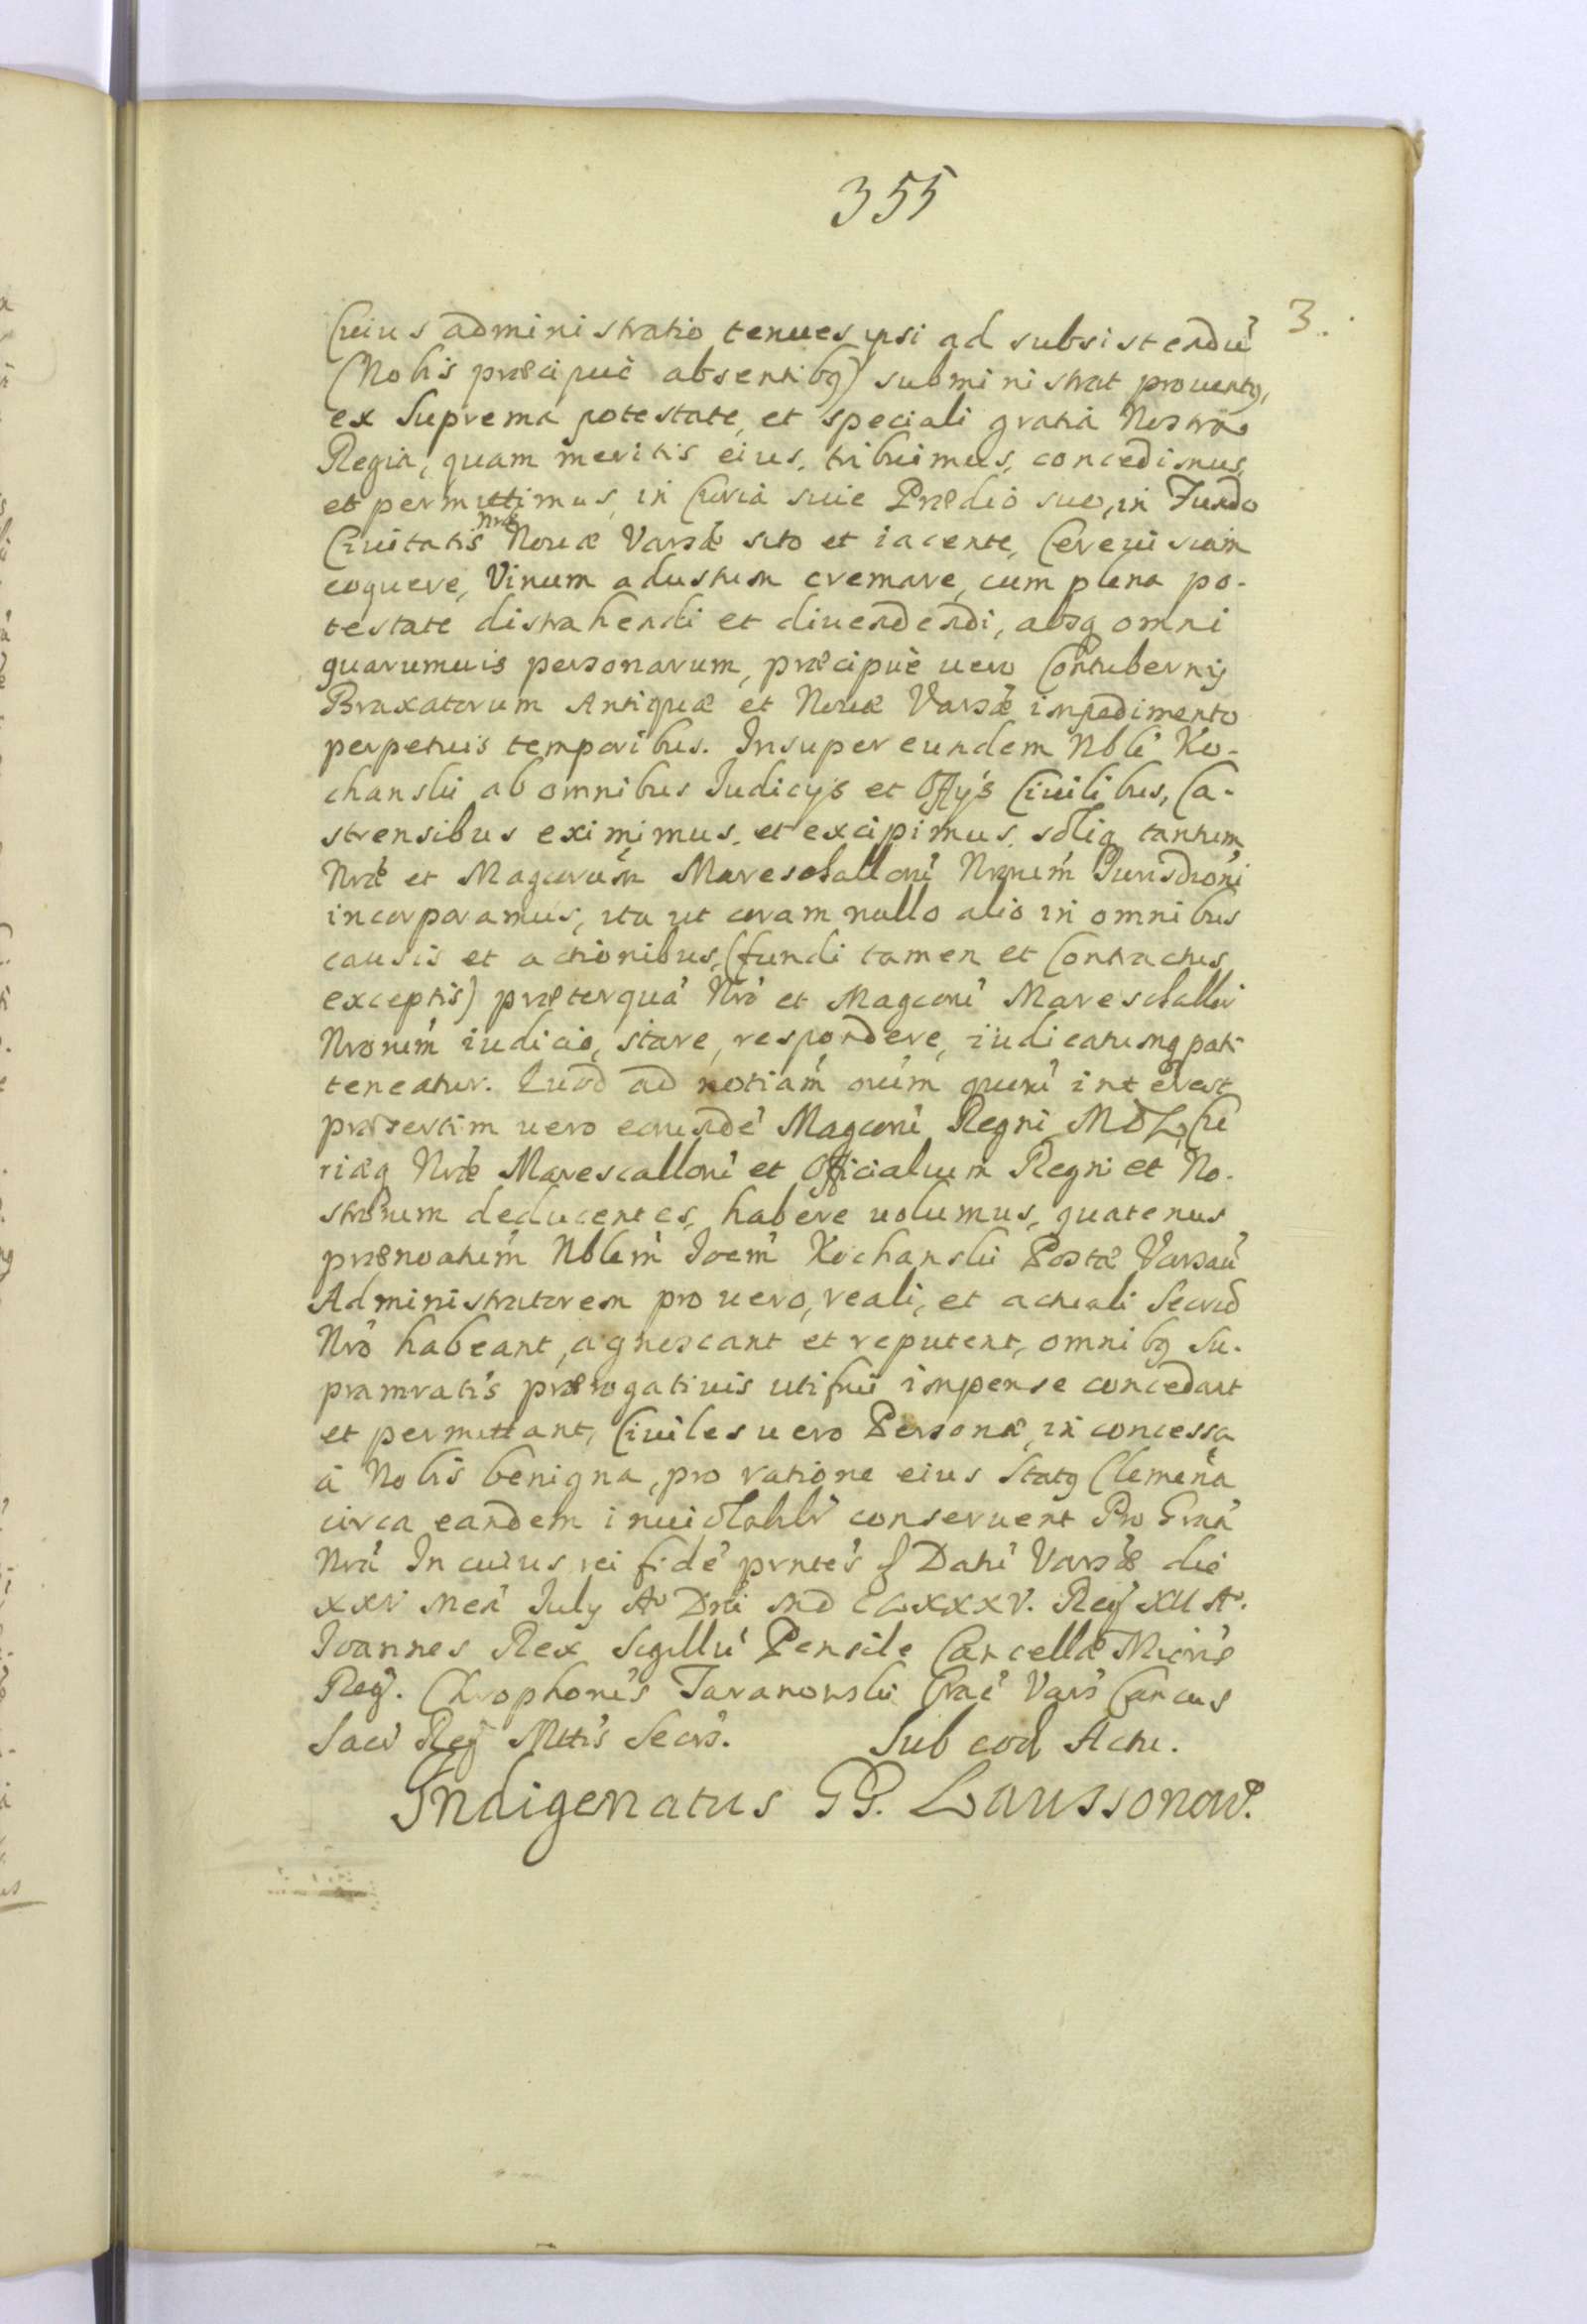 355
3.
Cuius administratio tenues ipsi ad subsistendũ
(Nobis præcipuè absentibq) subministrat prouentq,
ex Suprema potestate, et speciali gratia Nostra
Regia, quam meritis eius, tribuimus, concedimus,
et permittimus, in Curia siue Prædio suo, in Fundo
Ciuitatis Nræ Nouæ Varsæ sito et iacente, Cereuisiam
coquere, Vinum adustum cremare, cum plena po-
testate distrahendi et diuendendi, absq omni
quarumuis personarum, præcipuè uero Contubernij
Braxatorum Antiquæ et Nouæ Varsæ impedimento
perpetuis temporibus. Insuper eundem Nblẽ Ko-
chanski ab omnibus Iudicijs et Offijs Ciuilibus, Ca-
strensibus eximimus, et excipimus, soliq tantum
Nræ et Magcorum Mareschallorũ Nrorum Iurisdioni
incorporamus, ita ut coram nullo alio in omnibus
causis et actionibus, (fundi tamen et Contractus
exceptis) præterquã Nrõ et Magcorũ Mareschallor
Nrorum iudicio, stare, respondere, iudicatumq pati
teneatur. Quod ad notiam oium quorũ interest
præsertim uero eorundẽ Magcorũ Regni MDL, Cu
riæq Nræ Marescallorũ et Officialium Regni et No-
strorum deducentes, habere uolumus, quatenus
prænoatum Nblem Ioem Kochanski Postæ Varsaũ
Administratorem pro uero, reali, et actuali Secrio
Nrõ habeant, agnoscant et reputent, omnibq Su-
pramratis prærogatiuis uti frui impense concedant
et permittant, Ciuiles uero Personæ, in concessa
à Nobis benigna, pro ratione eius Statq Clemena
circa eandem inuiolablr conseruent Pro Gratã
Nrã In cuius rei fidẽ prntes f Datũ Varsæ die
XXV Mea July Aº Dni MDCLXXXV. Regj XII Aº.
Ioannes Rex Sigillũ Pensile Cancellæ Minoris
Regj. Chrophorus Taranowski Crac̃ Vars̃ Cancus
Sacr Regj Mttis Secrs. Sub eod Actu.
Indigenatus GG. Laussonow.